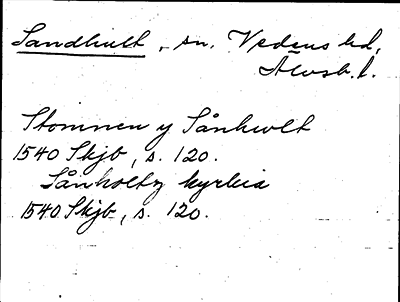 Sandhult, sn, Vedens hd,
Älvsb. l.
Stommen y Sånhwlt
1540 Skjb, s. 120.
Sånholtz kyrkia
1540 Skjb, s. 120.